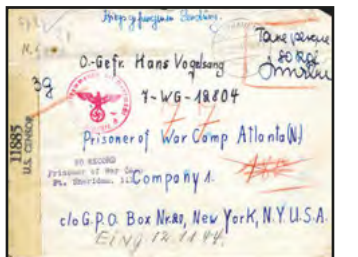 Kriegsgefangenen Sendung.
Taxe perçue
80 Rpf
39
O.-Gefr. Hans Vogelsang
7-WG-12804
11885
U.S. CENSOR
Prisoner of War Camp Atlanta(N.)
NO RECORD
Prisoner of War Camp
Ft. Sheridan, Ill.
Company 1.
c/o G.P.O. Box Nr. 20, New York, N.Y. U.S.A.
Eing. 12.1.44.